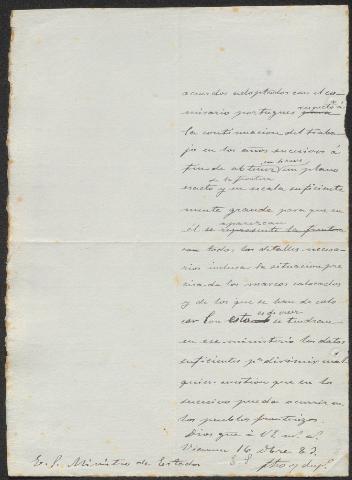 acuerdos adoptados con el co-
misario portugues respecto á
la continuacion del traba-
jo en los años sucesivos á
fin de obtener en breve un plano
de la frontera
esacto y en escala suficiente
mente grande para que en
aparezcan
el se represente la frontera
con todos los detalles necesa-
rios inclusa la situacion pre
cisa de los marcos colocados
y de los que se han de colo
car Con esto es de creer se tendran
en ese ministerio los datos
suficientes pª dirimir cual
quier motivo que en lo
sucesivo pueda ocurrir en
los pueblos fronterizos.
Dios gue á V.E. m. a.
16 8bre 82.
E. S. Ministro de Estado